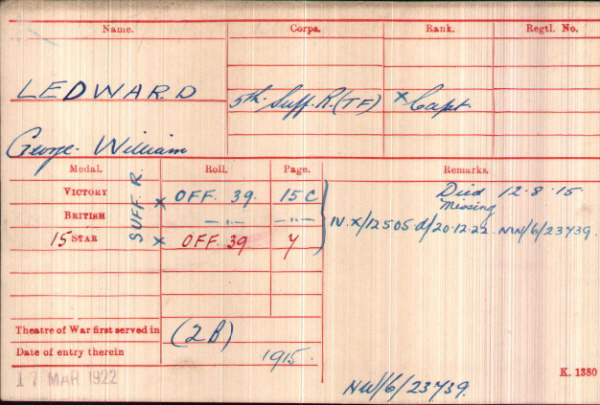 Name. Corps. Rank. Regtl. No.
LEDWARD 5th. Suff. R. (TF) x Capt
George William
Medal. Roll. Page. Remarks.
SUFF. R.
VICTORY x OFF. 39. 15 C Died 12.8.15
Missing
BRITISH —"— —"— IV. X/12505-d/20.12.22. NW/6/23739.
15 STAR x OFF. 39 4
Theatre of War first served in (2B)
Date of entry therein 1915.
17 MAR 1922
K. 1380
NW/6/23739.